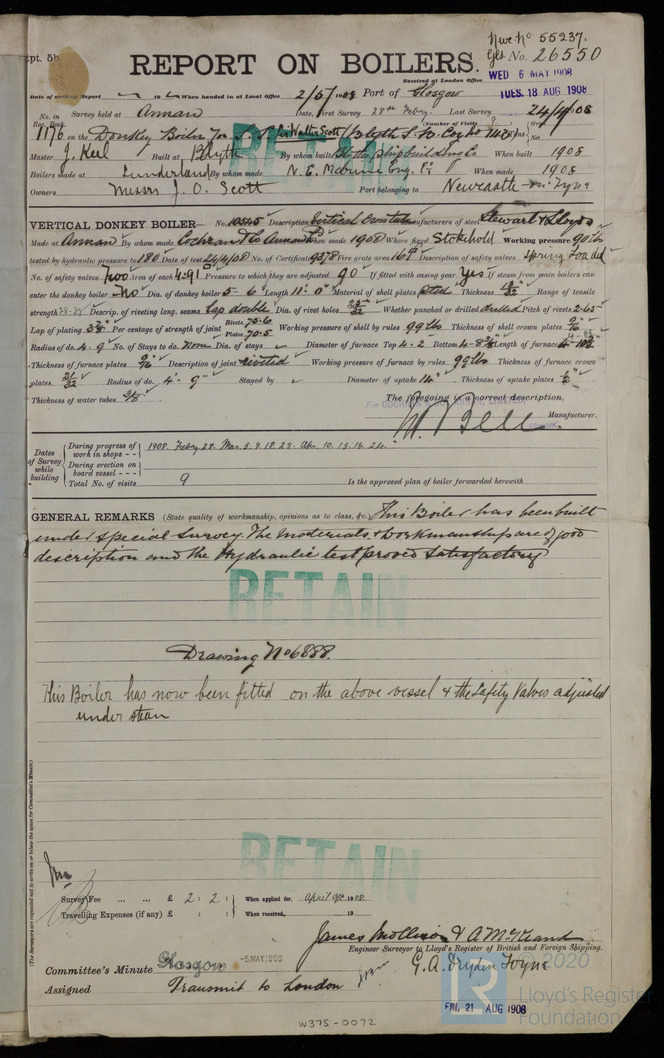 Nwc No 55237.
pt. 5b.
REPORT ON BOILERS.
Gls No. 26550
Received at London Office
WED 6 MAY 1908
TUES. 18 AUG 1908
Date of writing Report 19 When handed in at Local Office 2/5/1908 Port of Glasgow
No. in Reg. Book. Survey held at Annan Date, First Survey 28th Feby. Last Survey 24/4/08
(Number of Visits 9)
1176 on the Donkey Boiler for S.S. Sir Walter Scott
Master J. Keel Built at Blyth By whom built When built 1908
Boilers made at Sunderland By whom made N. E. Marine Eng. When made 1908
Owners Messrs J. O. Scott Port belonging to Newcastle
VERTICAL DONKEY BOILER No. 10545 Description Vertical Manufacturers of steel Stewart & Lloyds
Made at Annan By whom made Cochran & Co Annan When made 1908 Where fixed Stokehold Working pressure 90 lbs
tested by hydraulic pressure to 180 Date of test 24/4/08 No. of Certificate 9378 Fire grate area 16 Description of safety valves Spring Loaded
No. of safety valves Two Area of each 4.91 Pressure to which they are adjusted 90 If fitted with easing gear Yes If steam from main boilers can
enter the donkey boiler No Dia. of donkey boiler 5-6 Length 11-0" Material of shell plates steel Thickness 13/32 Range of tensile
strength Descrip. of riveting long. seams Lap double Dia. of rivet holes 25/32 Whether punched or drilled drilled Pitch of rivets 2.65
Lap of plating 3 7/8 Per centage of strength of joint Rivets 70.6 Plates 70.5 Working pressure of shell by rules 99 lbs Thickness of shell crown plates 9/16
Radius of do. 4-9 No. of Stays to do. None Dia. of stays Diameter of furnace Top 4-2 Bottom 4-8 Length of furnace
Thickness of furnace plates 9/16 Description of joint riveted Working pressure of furnace by rules 99 lbs Thickness of furnace crown
plates 21/32 Radius of do. 4-9" Stayed by Diameter of uptake 14" Thickness of uptake plates 1/2
Thickness of water tubes 3/8 The foregoing is a correct description,
Bell Manufacturer.
Dates of Survey while building
During progress of work in shops 1908. Feby. 28. Mar. 5. 9. 18. 29. Apr. 10. 15. 16. 24.
During erection on board vessel
Total No. of visits 9 Is the approved plan of boiler forwarded herewith
GENERAL REMARKS (State quality of workmanship, opinions as to class, &c. This Boiler has been built
under special survey. The materials & workmanship are of good
description and the Hydraulic test proved satisfactory
RETAIN
RETAIN
Drawing No 6888.
This Boiler has now been fitted on the above vessel & the Safety Valves adjusted
under steam
RETAIN
(The Surveyors are requested not to write on or below the space for Committee's Minute.)
Survey Fee £ 2 : 2 : When applied for, April 08
Travelling Expenses (if any) £ : : When received, 19
James Mollison & A McKeand
Engineer Surveyor to Lloyd's Register of British and Foreign Shipping.
Committee's Minute Glasgow -5 MAY 1908
G. A. Dryden Tyne
Assigned Transmit to London
FRI. 21 AUG 1908
© 2020
LR
Lloyd's Register
Foundation
W375-0072